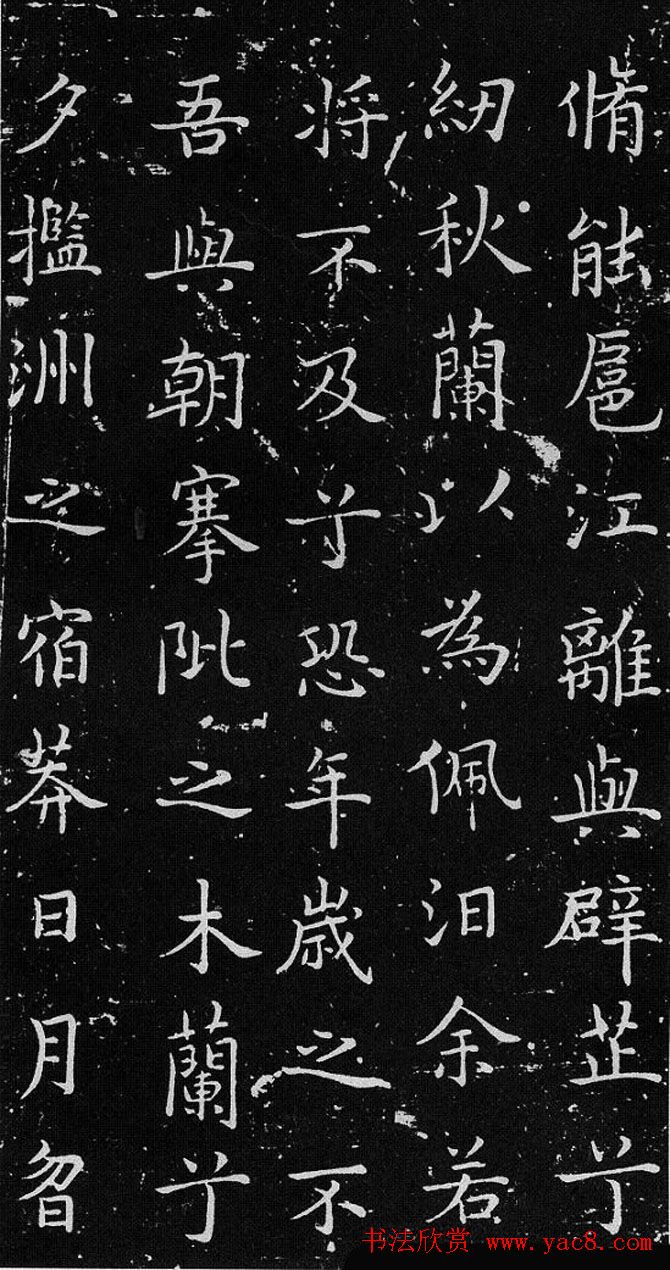 脩能扈江離與辟芷兮
紉秋蘭以為佩汩余若
将不及兮恐年歳之不
吾與朝搴阰之木蘭兮
夕㩜洲之宿莽日月曶
书法欣赏 www.yac8.com